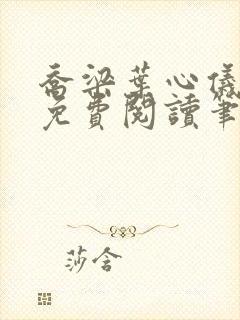 喬梁葉心儀
免費閱讀筆
莎含